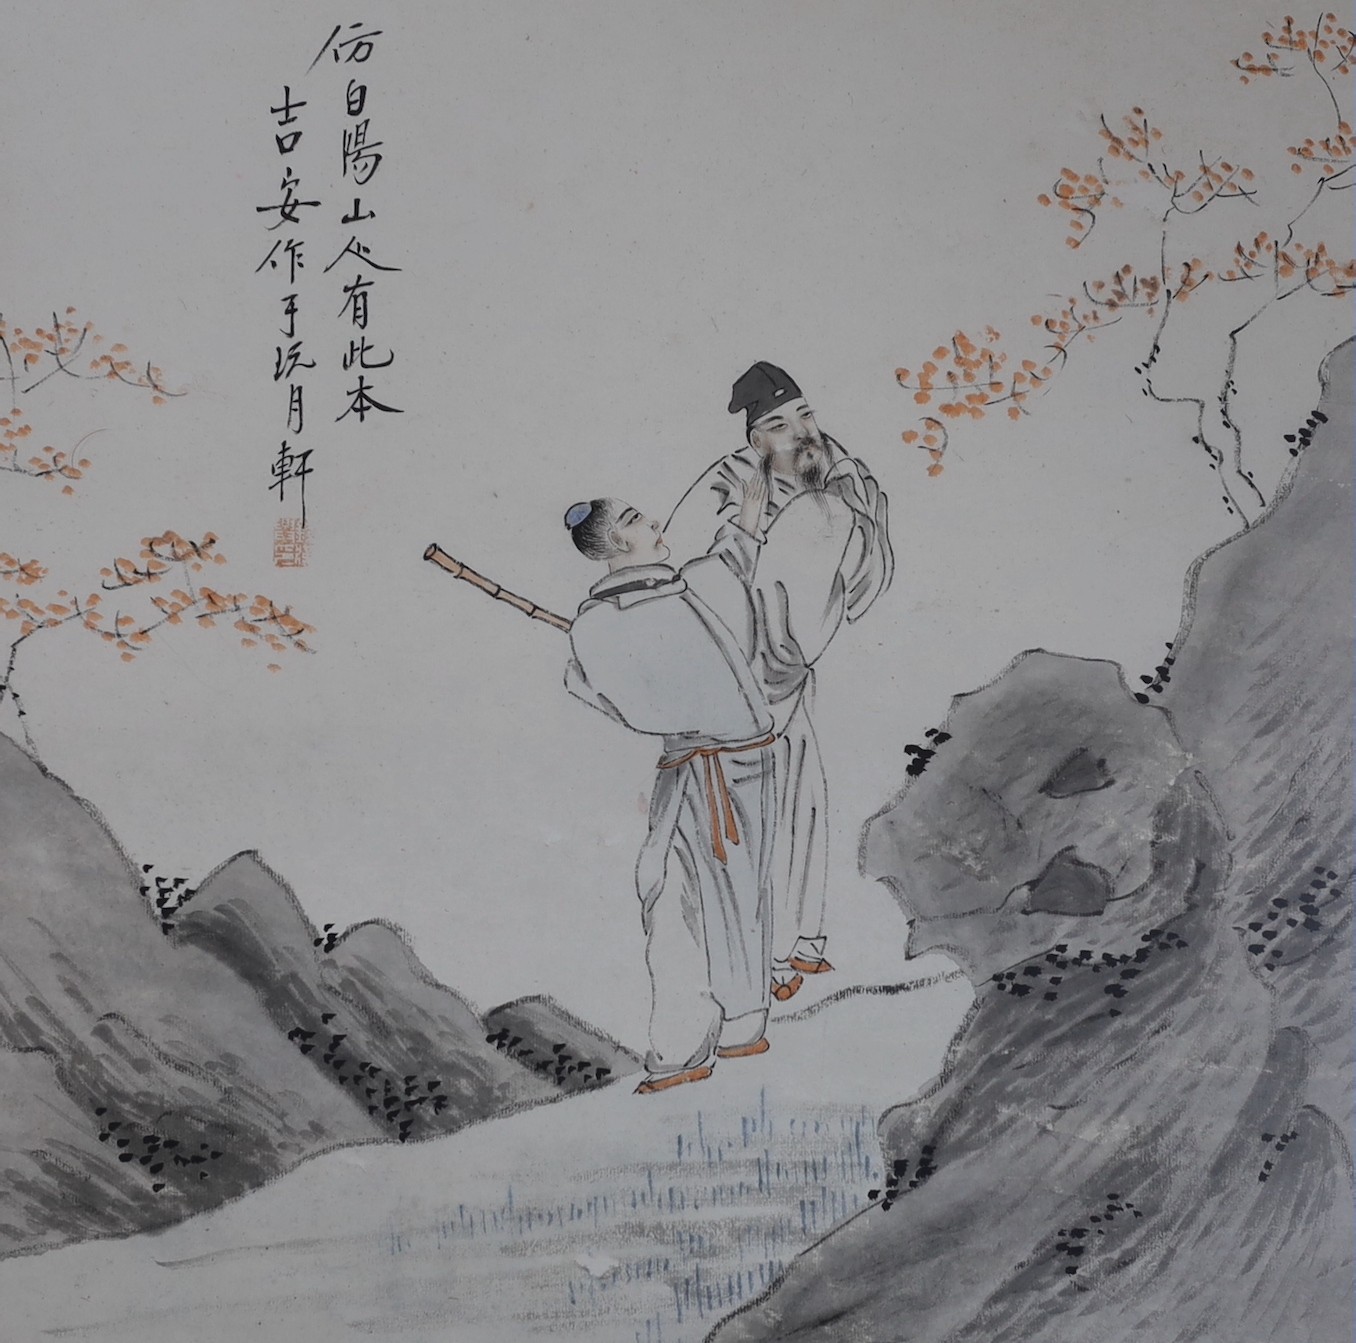 仿白陽山人有此本
吉安作于玩月軒